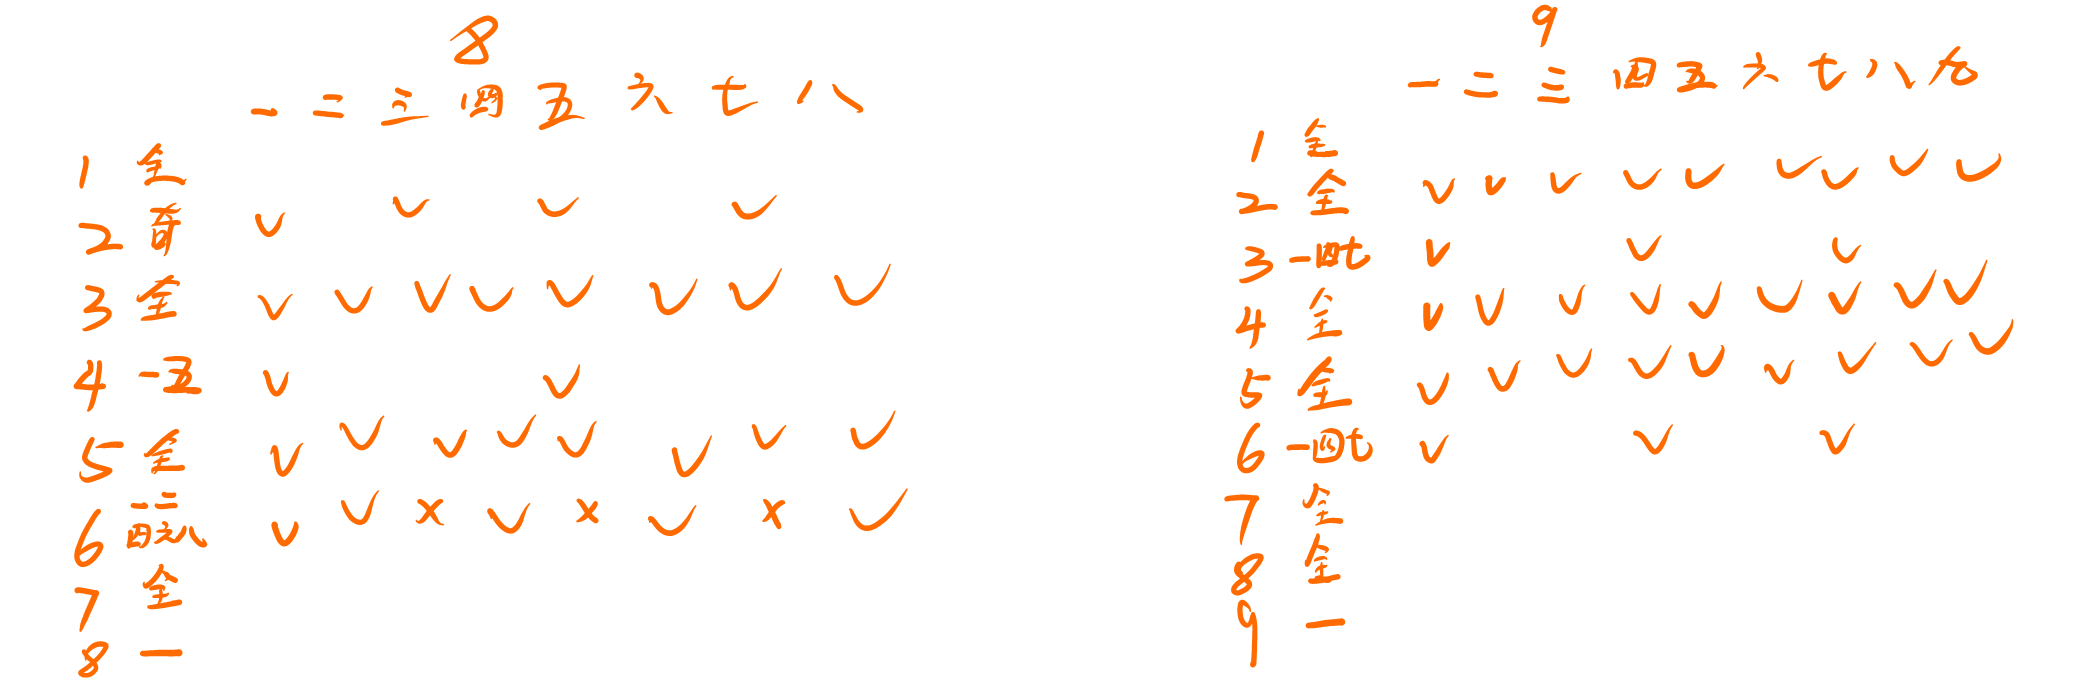 8
一 二 三 四 五 六 七 八
1 全
2 奇 ✓ ✓ ✓ ✓
3 全 ✓ ✓ ✓ ✓ ✓ ✓ ✓ ✓
4 一五 ✓ ✓
5 全 ✓ ✓ ✓ ✓ ✓ ✓ ✓ ✓
6 一二四六八 ✓ ✓ × ✓ × ✓ × ✓
7 全
8 一
9
一 二 三 四 五 六 七 八 九
1 全
2 全 ✓ ✓ ✓ ✓ ✓ ✓ ✓ ✓ ✓
3 一四七 ✓ ✓ ✓
4 全 ✓ ✓ ✓ ✓ ✓ ✓ ✓ ✓ ✓
5 全 ✓ ✓ ✓ ✓ ✓ ✓ ✓ ✓ ✓
6 一四七 ✓ ✓ ✓
7 全
8 全
9 一